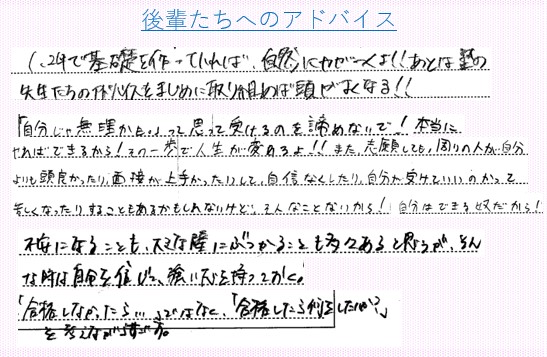 後輩たちへのアドバイス
1、2年で基礎を作っていれば、自然にやがつくよ!!あとは塾の
先生たちのアドバイスをまじめに取り組めば頭がよくなる!!
「自分じゃ無理かも」って思って受けるのを諦めないで!本当に
やればできるから!その一歩で人生が変わるよ!!また、志願しても、周りの人が自分
よりも頭良かったり、面接が上手かったりして、自信なくしたり、自分が受けていいのかって
苦しくなったりすることもあるかもしれないけど、そんなことないから!自分はできる奴だから!
不安になることも、大きな壁にぶつかることも多々あると思うが、そん
な時は自分を信じて、強い心を持ってください。
「合格しなかったら…」ではなく、「合格したら何をしたいか?」
を考えながら